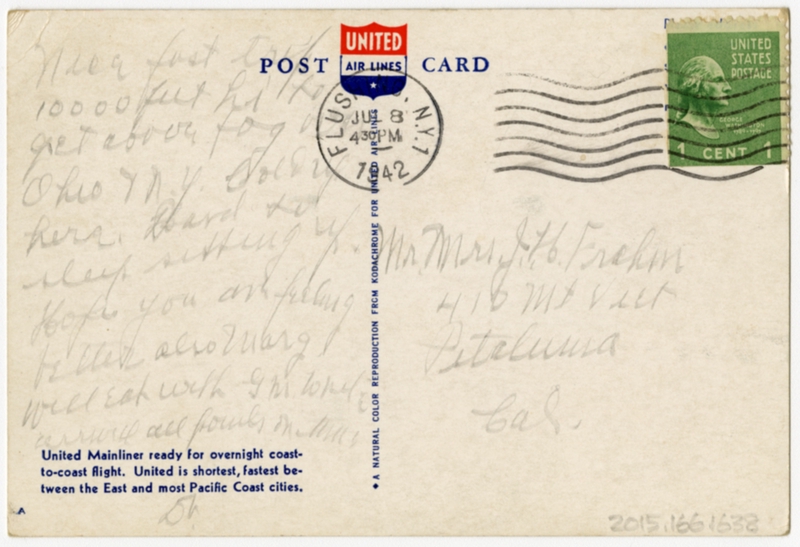 POST CARD
UNITED
AIR LINES
FLUSHING, N.Y. 1
JUL 8
4 30 PM
1942
UNITED
STATES
POSTAGE
GEORGE
WASHINGTON
1 CENT 1
Nice fast trip
10000 feet hi to
get above fog in
Ohio & N.Y.
here. Hard to
sleep sitting up.
Hope you are feeling
better also Marg
Will eat with
arrived all
Mr. Mrs J. H. Frahm
410 Mt View
Petaluma
Cal.
A NATURAL COLOR REPRODUCTION FROM KODACHROME FOR UNITED AIR LINES
United Mainliner ready for overnight coast-
to-coast flight. United is shortest, fastest be-
tween the East and most Pacific Coast cities.
2015.166.1638